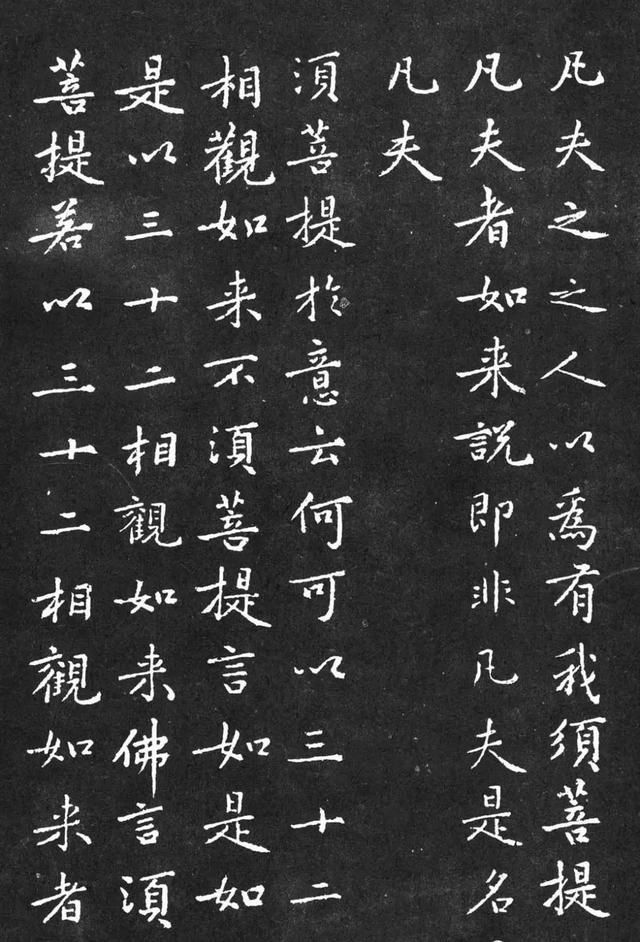 凡夫之之人以為有我須菩提
凡夫者如来說即非凡夫是名
凡夫
須菩提於意云何可以三十二
相觀如来不須菩提言如是如
是以三十二相觀如来佛言須
菩提若以三十二相觀如来者